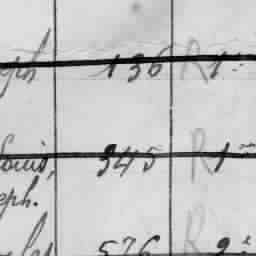 eph 136 R 1er
Louis, 345 R 1er
eph.
576 R 2e